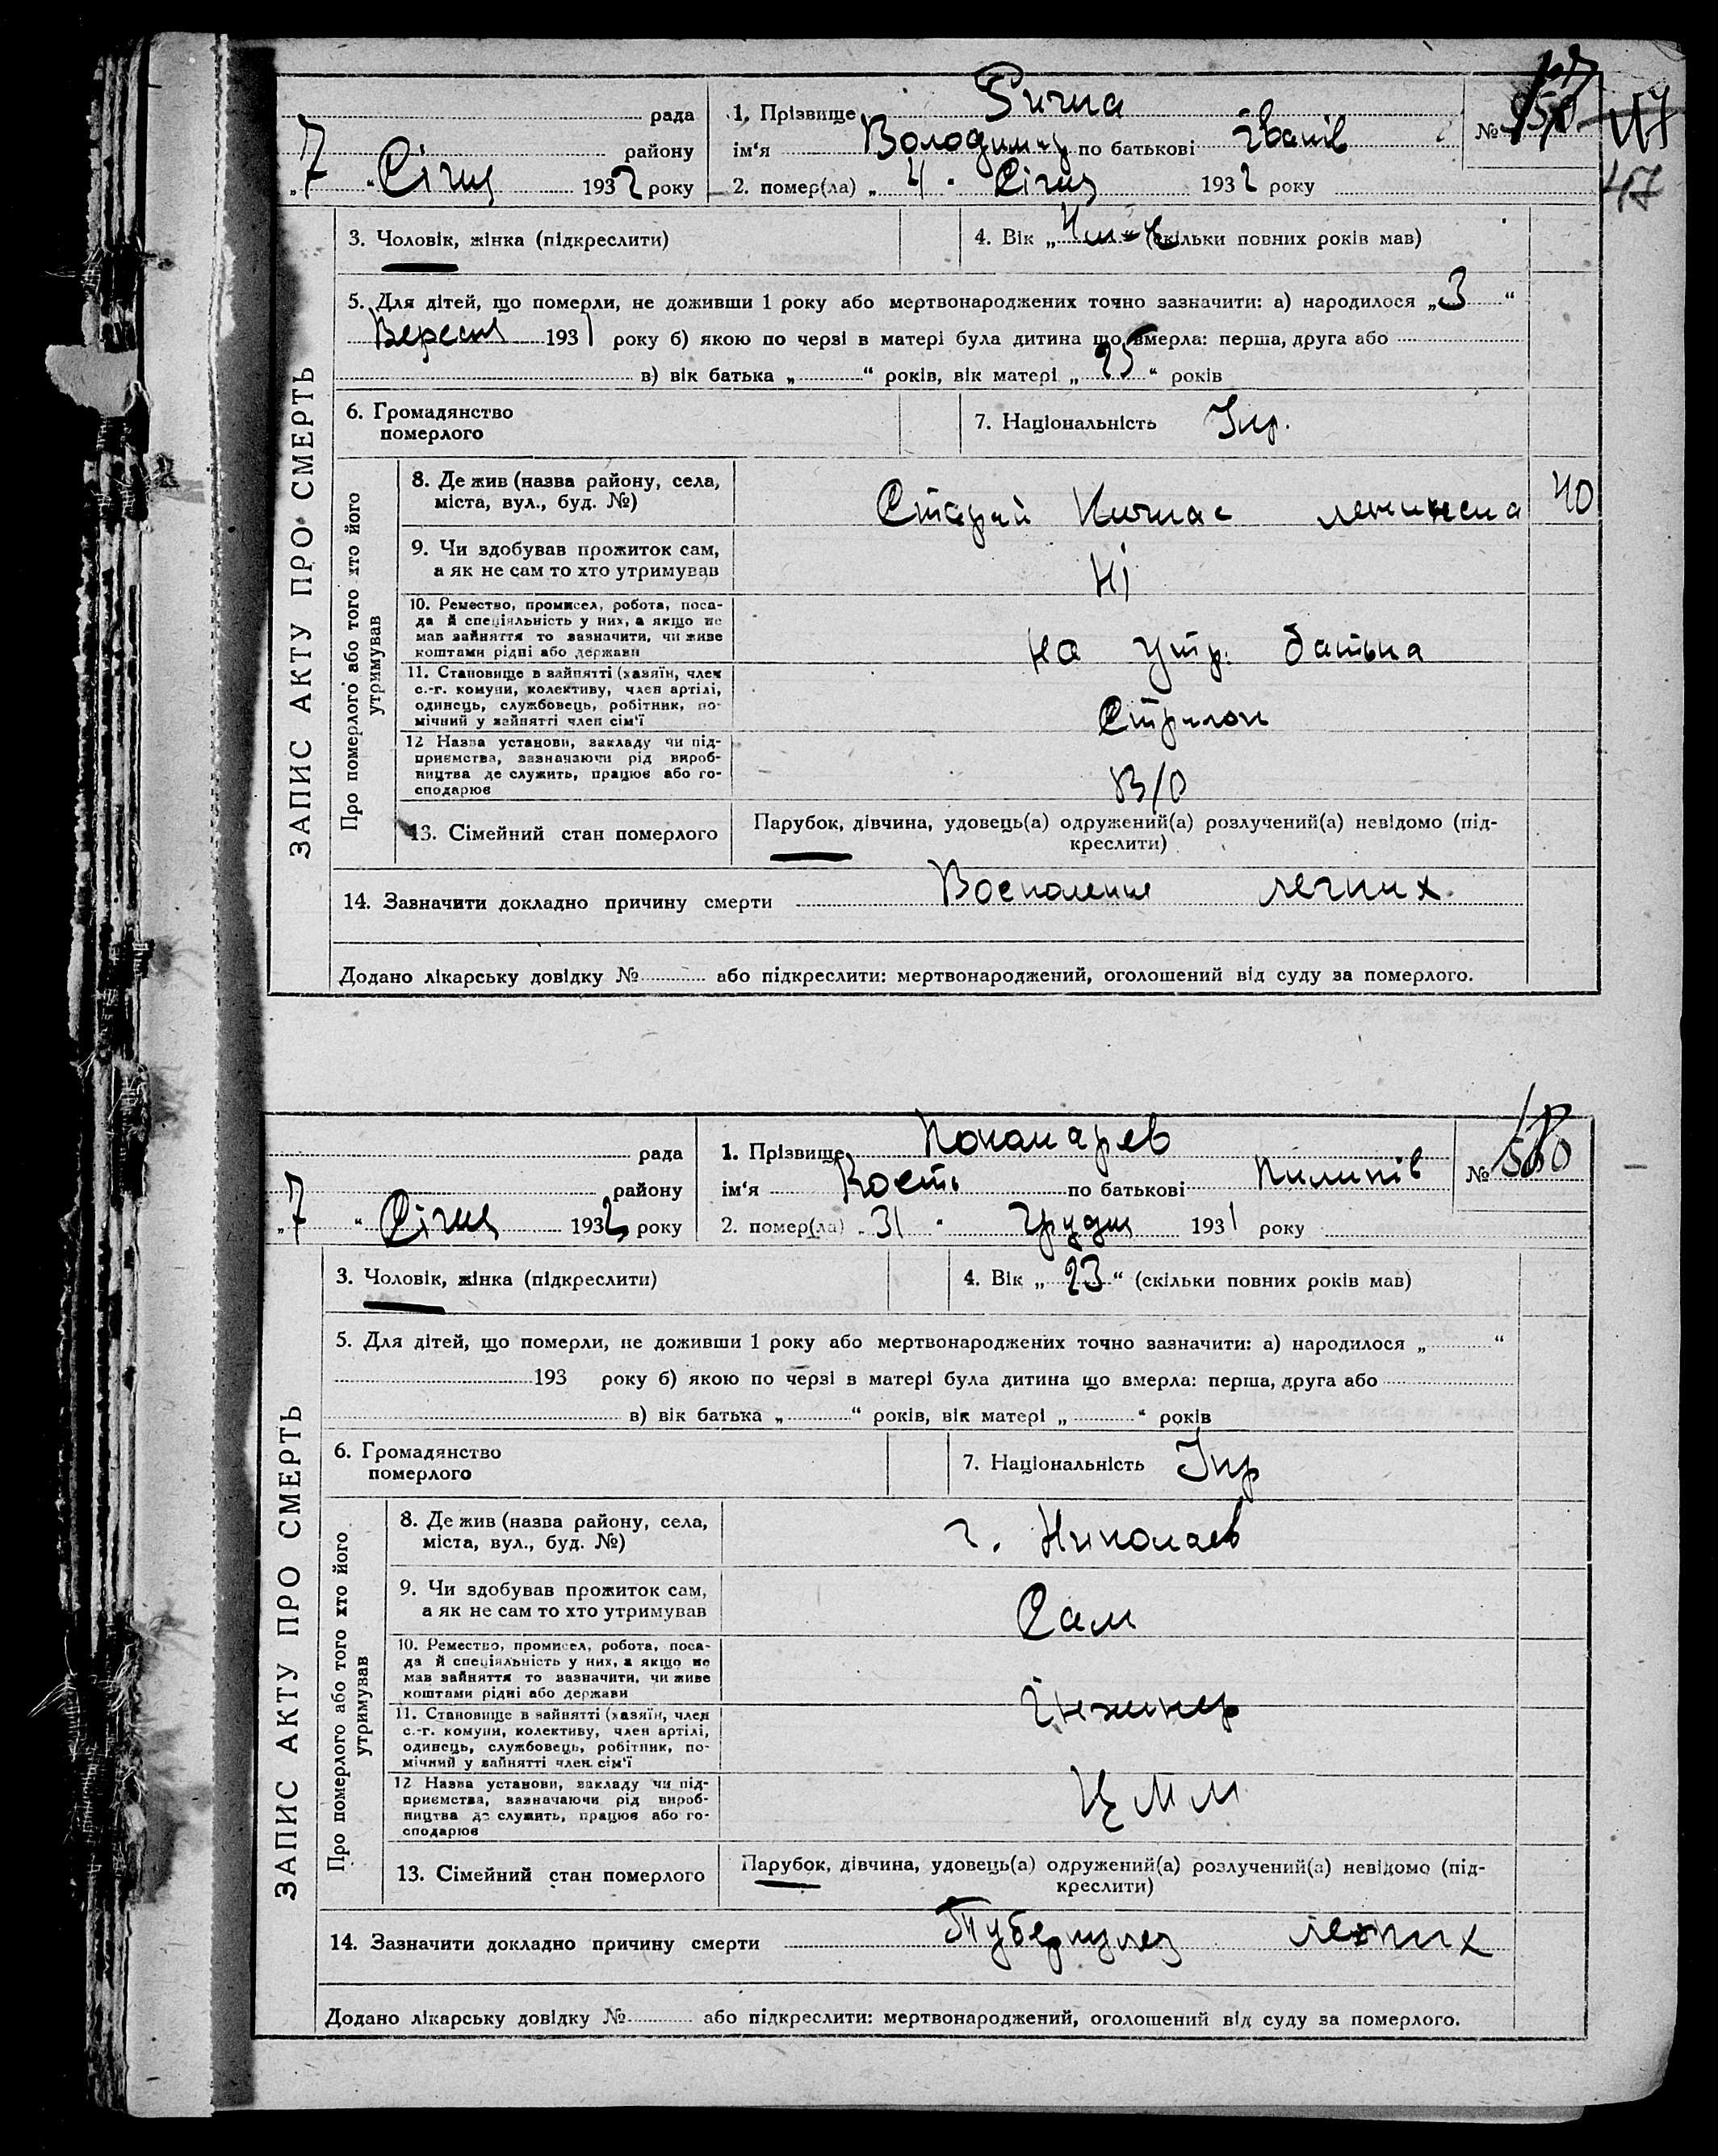 рада
району
„7“ Січня 1932 року
1. Прізвище
ім‘я Володимир по батькові Іванів
2. помер(ла) „4“ Січня 1932 року
№
47
ЗАПИС АКТУ ПРО СМЕРТЬ
3. Чоловік, жінка (підкреслити)
4. Вік „ “ (скільки повних років мав)
5. Для дітей, що померли, не доживши 1 року або мертвонароджених точно зазначити: а) народилося „3“
Вересня 1931 року б) якою по черзі в матері була дитина що вмерла: перша, друга або
в) вік батька „ “ років, вік матері „25“ років
6. Громадянство
померлого
7. Національність Укр.
Про померлого або того хто його
утримував
8. Де жив (назва району, села,
міста, вул., буд. №)
Старий 40
9. Чи здобував прожиток сам,
а як не сам то хто утримував
Ні
10. Ремество, промисел, робота, поса-
да й спеціяльність у них, а якщо не
мав зайняття то зазначити, чи живе
коштами рідні або держави
на утр. батька
11. Становище в зайнятті (хазяїн, член
с.-г. комуни, колективу, член артілі,
одинець, службовець, робітник, по-
мічний у зайнятті член сім'ї
Стрилок
12 Назва установи, закладу чи під-
приємства, зазначаючи рід вироб-
ництва де служить, працює або го-
сподарює
В/О
13. Сімейний стан померлого
Парубок, дівчина, удовець(а) одружений(а) розлучений(а) невідомо (під-
креслити)
14. Зазначити докладно причину смерти Воспаление легких.
Додано лікарську довідку № або підкреслити: мертвонароджений, оголошений від суду за померлого.
рада
району
„7“ Січня 1932 року
1. Прізвище Понамарев
ім‘я Кость по батькові Пилипів
2. помер(ла) „31“ Грудня 1931 року
№
ЗАПИС АКТУ ПРО СМЕРТЬ
3. Чоловік, жінка (підкреслити)
4. Вік „23“ (скільки повних років мав)
5. Для дітей, що померли, не доживши 1 року або мертвонароджених точно зазначити: а) народилося „ “
193 року б) якою по черзі в матері була дитина що вмерла: перша, друга або
в) вік батька „ “ років, вік матері „ “ років
6. Громадянство
померлого
7. Національність Укр
Про померлого або того хто його
утримував
8. Де жив (назва району, села,
міста, вул., буд. №)
г. Николаев
9. Чи здобував прожиток сам,
а як не сам то хто утримував
Сам
10. Ремество, промисел, робота, поса-
да й спеціяльність у них, а якщо не
мав зайняття то зазначити, чи живе
коштами рідні або держави
Інженер
11. Становище в зайнятті (хазяїн, член
с.-г. комуни, колективу, член артілі,
одинець, службовець, робітник, по-
мічний у зайнятті член сім'ї
12 Назва установи, закладу чи під-
приємства, зазначаючи рід вироб-
ництва де служить, працює або го-
сподарює
ЦММ
13. Сімейний стан померлого
Парубок, дівчина, удовець(а) одружений(а) розлучений(а) невідомо (під-
креслити)
14. Зазначити докладно причину смерти Туберкулез легких
Додано лікарську довідку № або підкреслити: мертвонароджений, оголошений від суду за померлого.